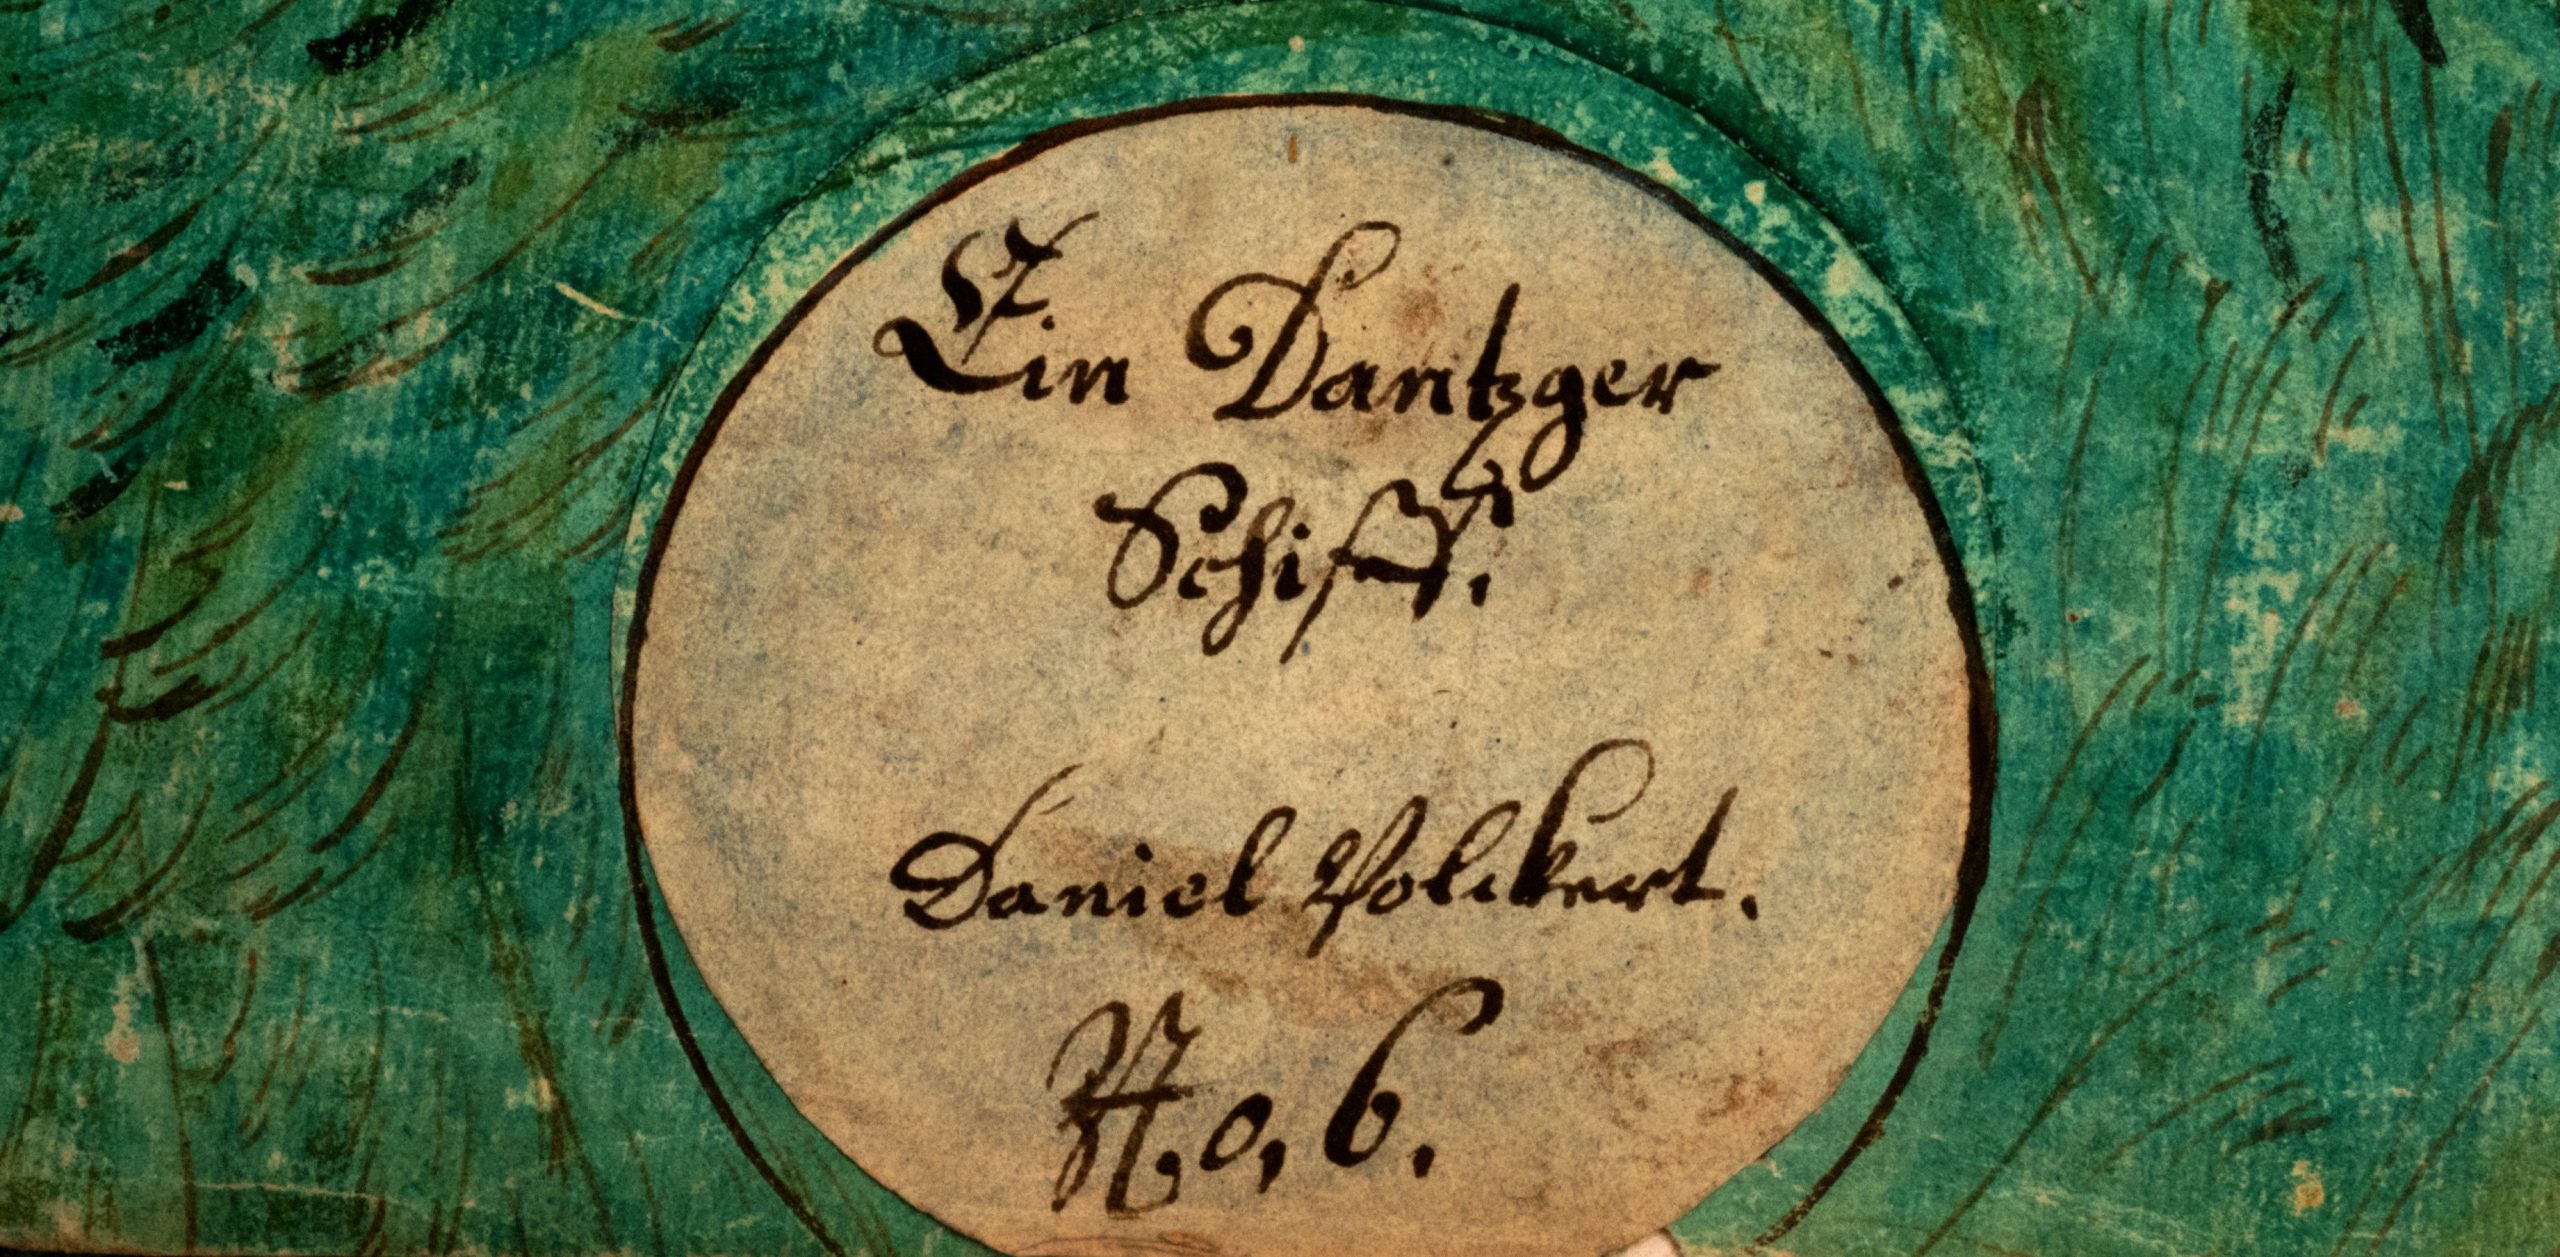 Ein Dantzger
Schiff.
Daniel Volckert.
No, 6.